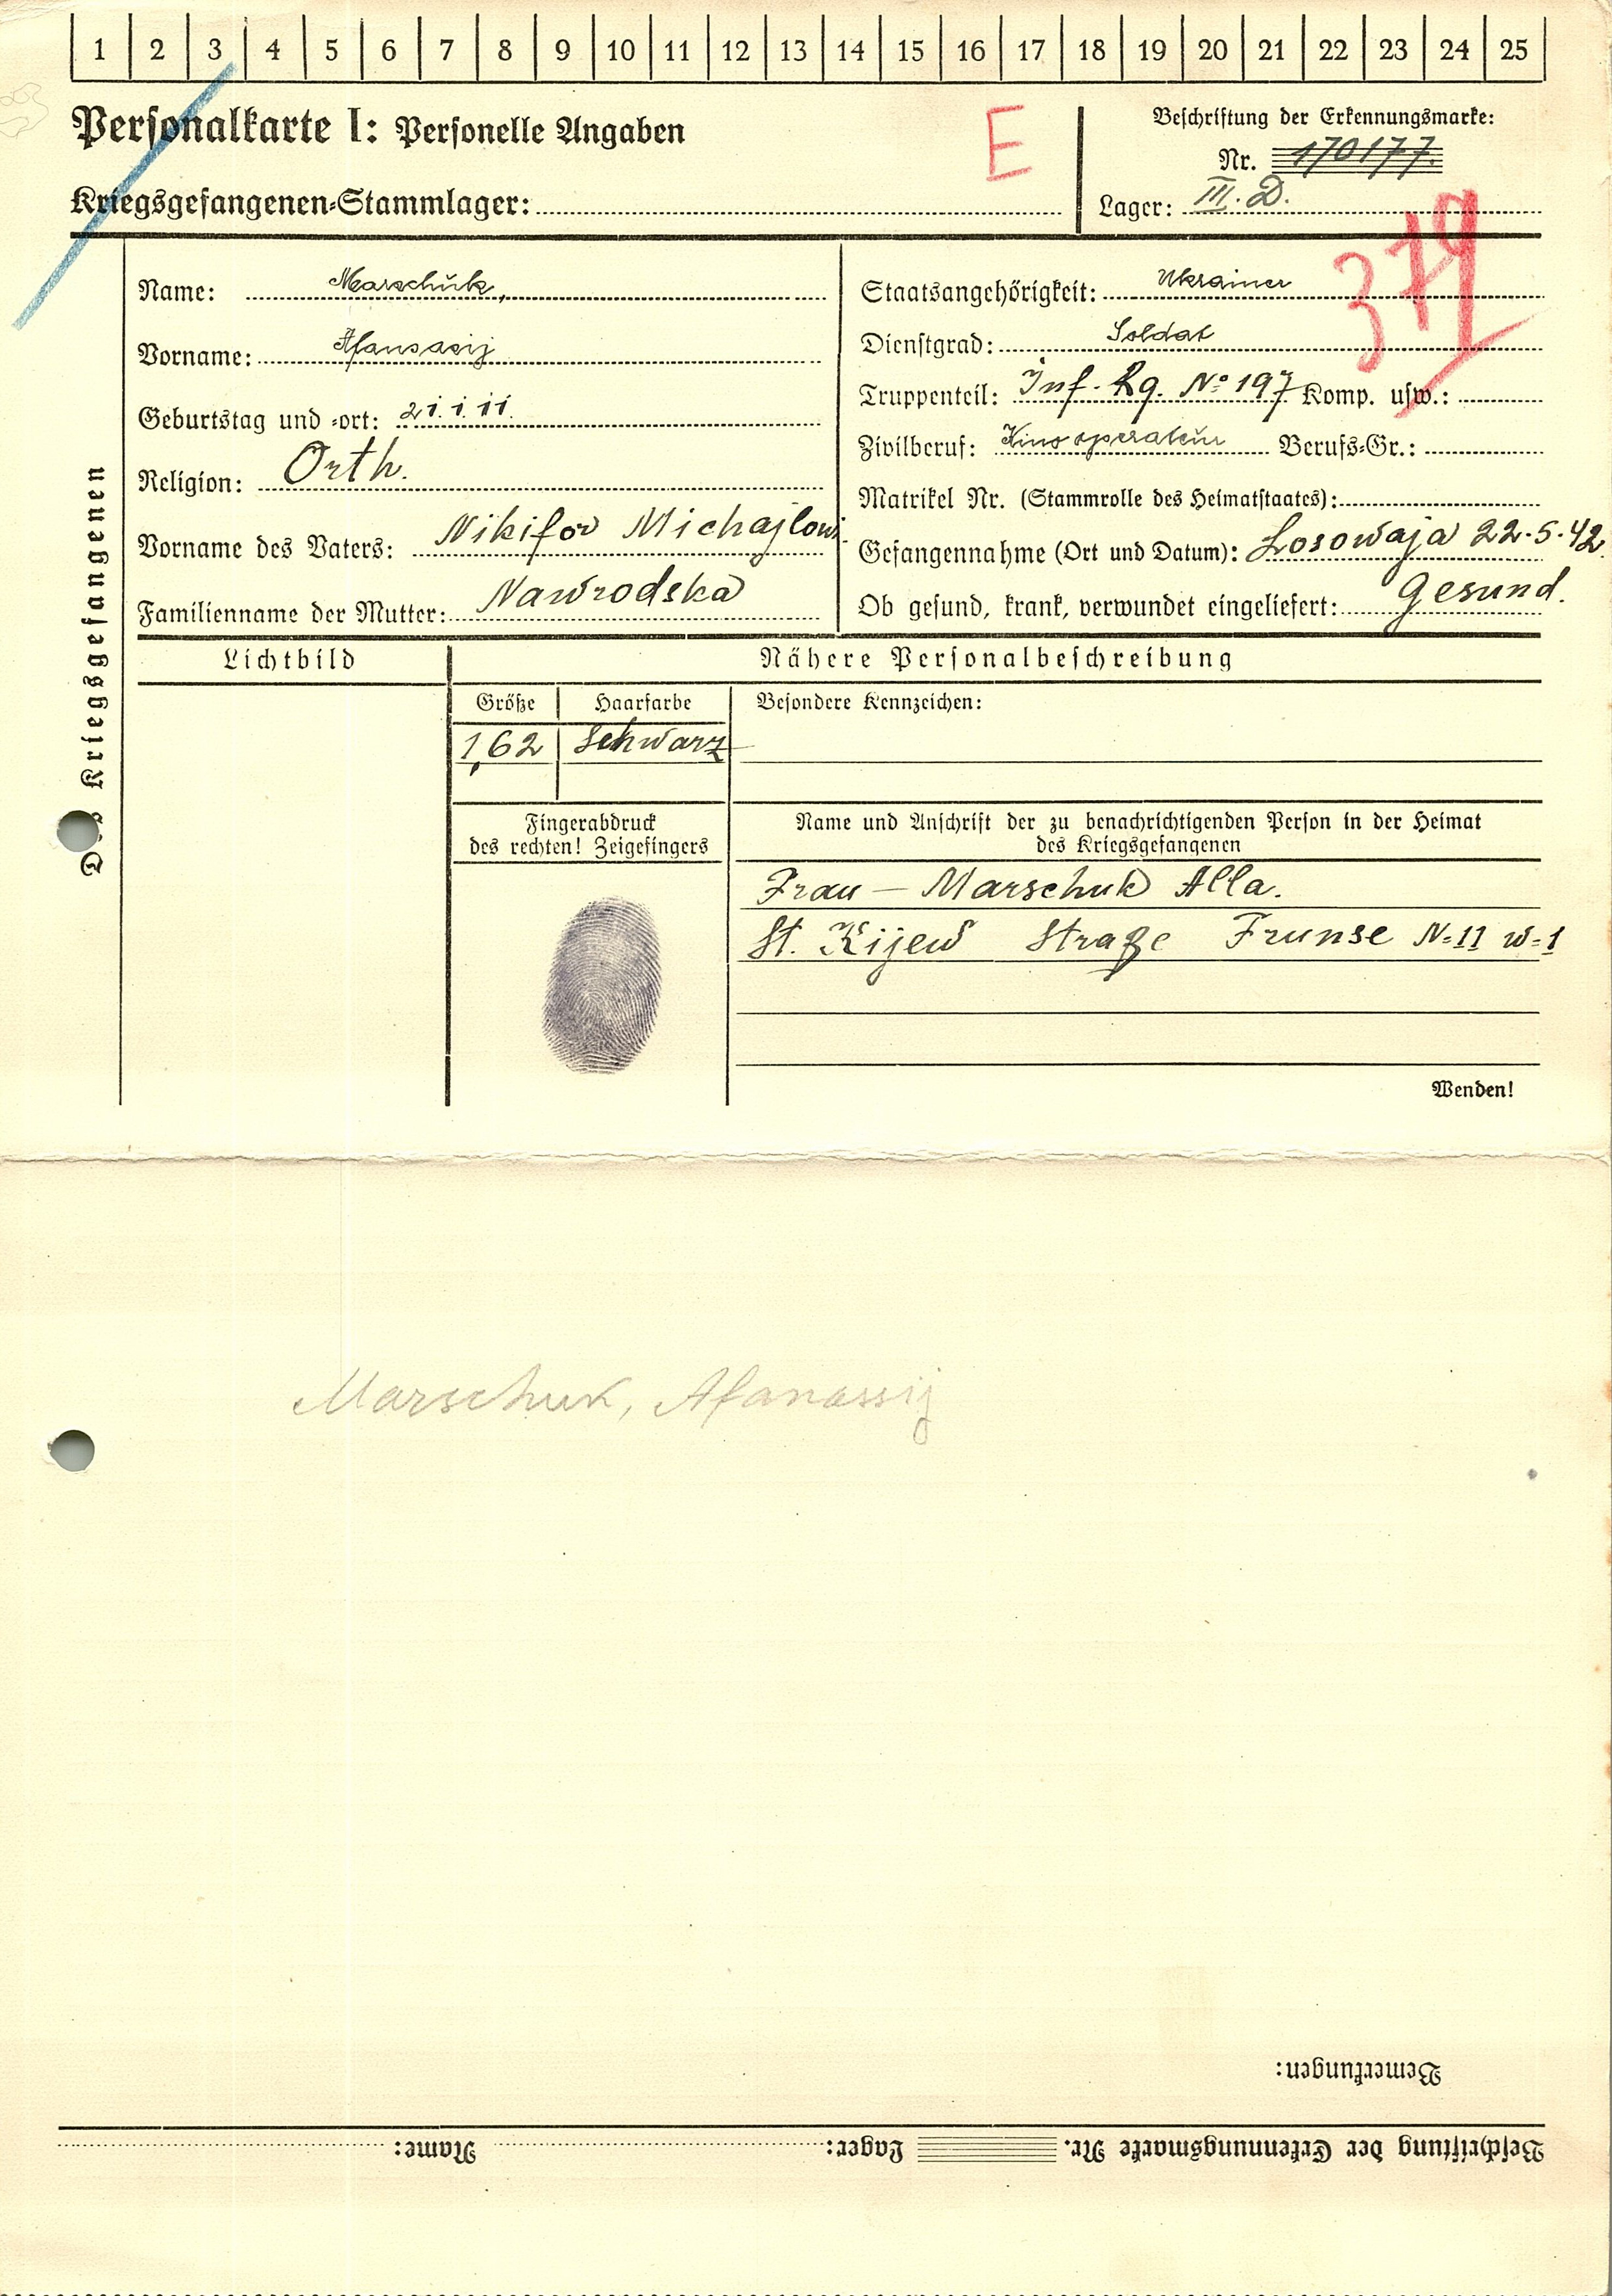 1 2 3 4 5 6 7 8 9 10 11 12 13 14 15 16 17 18 19 20 21 22 23 24 25
Personalkarte I: Personelle Angaben
E
Beschriftung der Erkennungsmarke:
Nr. 170177.
Kriegsgefangenen-Stammlager:
Lager: III. D.
379
Des Kriegsgefangenen
Name: Marschuk,
Vorname: Afanasij
Geburtstag und -ort: 21.1.11.
Religion: Orth.
Vorname des Vaters: Nikifor Michajlowi
Familienname der Mutter: Nawrodska
Staatsangehörigkeit: Ukrainer
Dienstgrad: Soldat
Truppenteil: Inf. Rg. No 197 Komp. usw.:
Zivilberuf: Kinooperateur Berufs-Gr.:
Matrikel Nr. (Stammrolle des Heimatstaates):
Gefangennahme (Ort und Datum): Losowaja 22.5.42.
Ob gesund, krank, verwundet eingeliefert: Gesund.
Lichtbild
Nähere Personalbeschreibung
Größe Haarfarbe Besondere Kennzeichen:
1,62 Schwarz
Fingerabdruck
des rechten! Zeigefingers
Name und Anschrift der zu benachrichtigenden Person in der Heimat
des Kriegsgefangenen
Frau — Marschuk Alla.
St. Kijew Straße Frunse N=11 w=1
Wenden!
Marschuk, Afanassij
Bemerkungen:
Beschriftung der Erkennungsmarke Nr. Lager: Name: